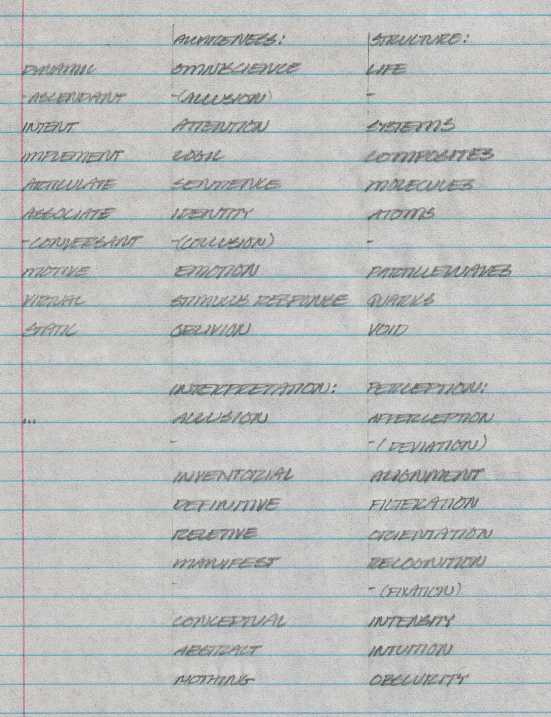 AWARENESS: STRUCTURE:
DYNAMIC OMNISCIENCE LIFE
-ASCENDANT -(ALLUSION) -
INTENT ATTENTION SYSTEMS
IMPLEMENT LOGIC COMPOSITES
ARTICULATE SENTIENCE MOLECULES
ASSOCIATE IDENTITY ATOMS
-CONVERSANT -(COLLUSION) -
MOTIVE EMOTION PARTICLEWAVES
VIRTUAL STIMULUS RESPONSE QUARKS
STATIC OBLIVION VOID
INTERPRETATION: PERCEPTION:
... ALLUSION AFTERCEPTION
- -(DEVIATION)
INVENTORIAL ALIGNMENT
DEFINITIVE FILTERATION
RELETIVE ORIENTATION
MANIFEST RECOGNITION
- -(FIXATION)
CONCEPTUAL INTENSITY
ABSTRACT INTUITION
NOTHING OBSCURITY